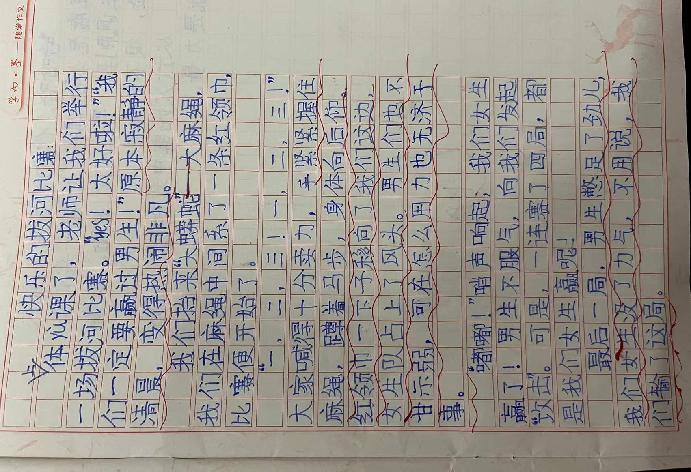 快乐的拔河比赛
体沁课了，老师让我们举行
一场拔河比赛。"yes！太好啦！""我
们一定要赢过男生！"原本寂静的
清晨，变得热闹非凡。
我们抬来"大蟒蛇"——大麻绳，
我们在麻绳中间系了一条红领巾，
比赛便开始了。
"一，二，三！一，二，三！"
大家喊得十分卖力，紧紧握住
麻绳，蹲着马步，身体向后仰。
红领巾一下子移向了我们这边，
女生队占上了风头。男生们也不
甘示弱，可在怎么用力也无济于
事。
"嘟嘟！"哨声响起，我们女生
赢了！男生不服气，向我们发起
"攻击"。可是，一连赛了四局，都
是我们女生赢呢！
最后一局，男生憋足了劲儿，
我们女生没了力气，不用说，我
们输了这局。